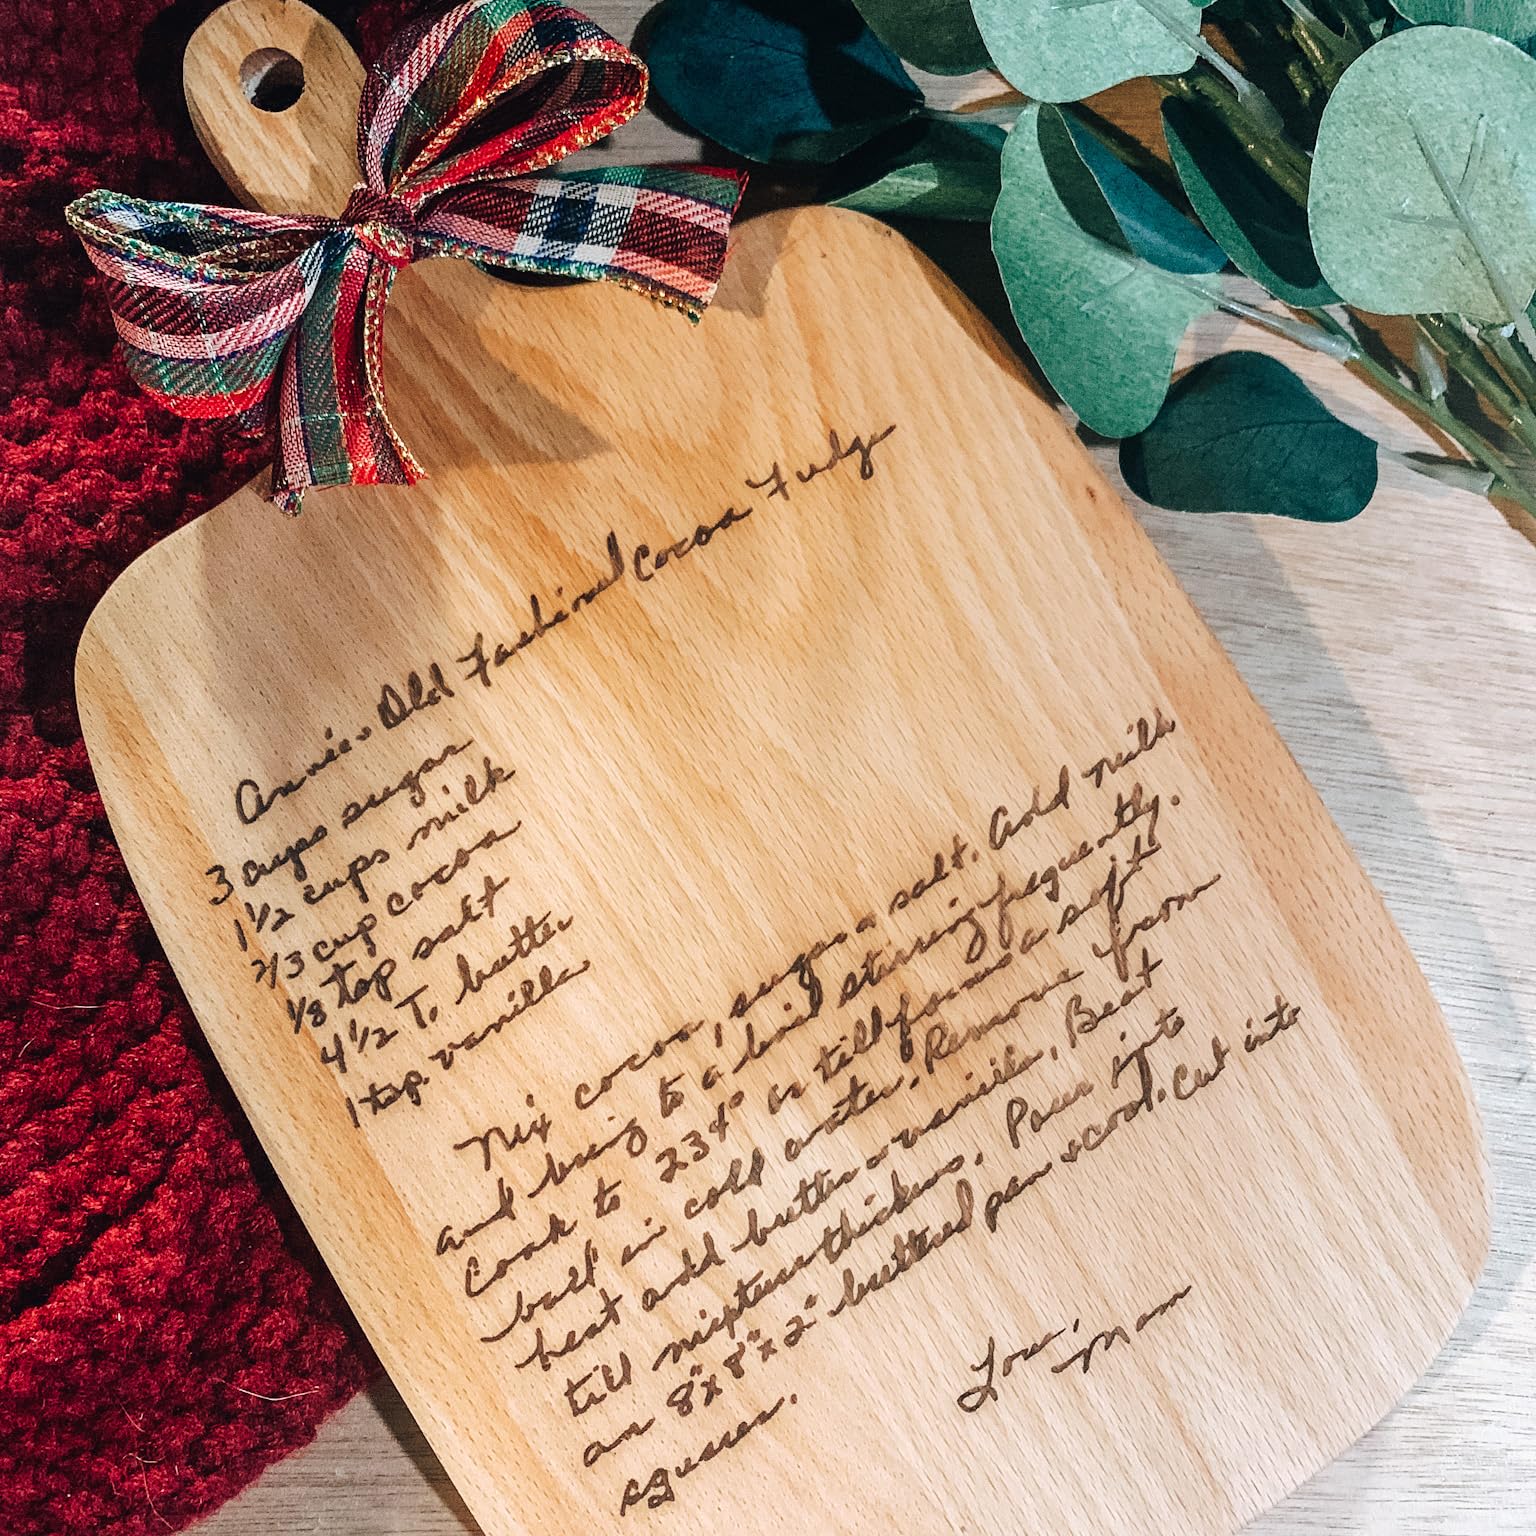 Annie's Old Fashined Cocoa Fudge
3 cups sugar
1 1/2 cups milk
2/3 cup cocoa
1/8 tsp salt
4 1/2 T. butter
1 tsp. vanilla
Mix cocoa, sugar & salt. Add milk
and bring to a boil stirring frequently.
Cook to 234° or till forms a soft
ball in cold water. Remove from
heat add butter & vanilla, Beat
till mixture thickens. Pour into
an 8"x 8"x 2" buttered pan & cool. Cut into
squares.
Love,
Mom